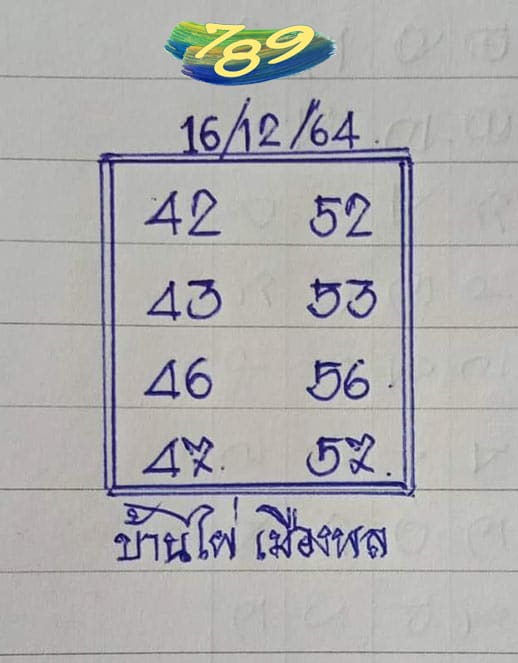 789
16/12/64
42 52
43 53
46 56
47 57
บ้านไผ่ เมืองพล